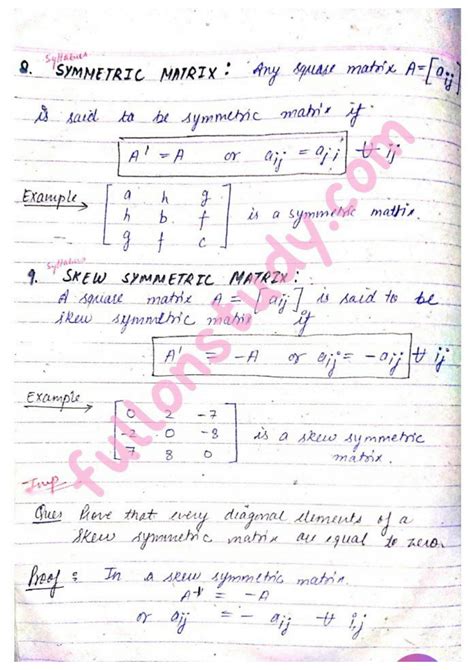 Syllabus
8. SYMMETRIC MATRIX: Any square matrix A=[aij]
is said to be symmetric matrix if
A' = A or aij = aji ∀ ij
Example → [ a h g
h b f
g f c ] is a symmetric matrix.
Syllabus
9. SKEW SYMMETRIC MATRIX:
A square matrix A = [aij] is said to be
skew symmetric matrix if
A' = -A or aij = -aij ∀ ij
Example → [ 0 2 -7
-2 0 -8
7 8 0 ] is a skew symmetric
matrix.
Imp
Ques Prove that every diagonal elements of a
skew symmetric matrix are equal to zero.
Proof : In a skew symmetric matrix.
A' = -A
or aij = - aij ∀ i,j
fullonstudy.com